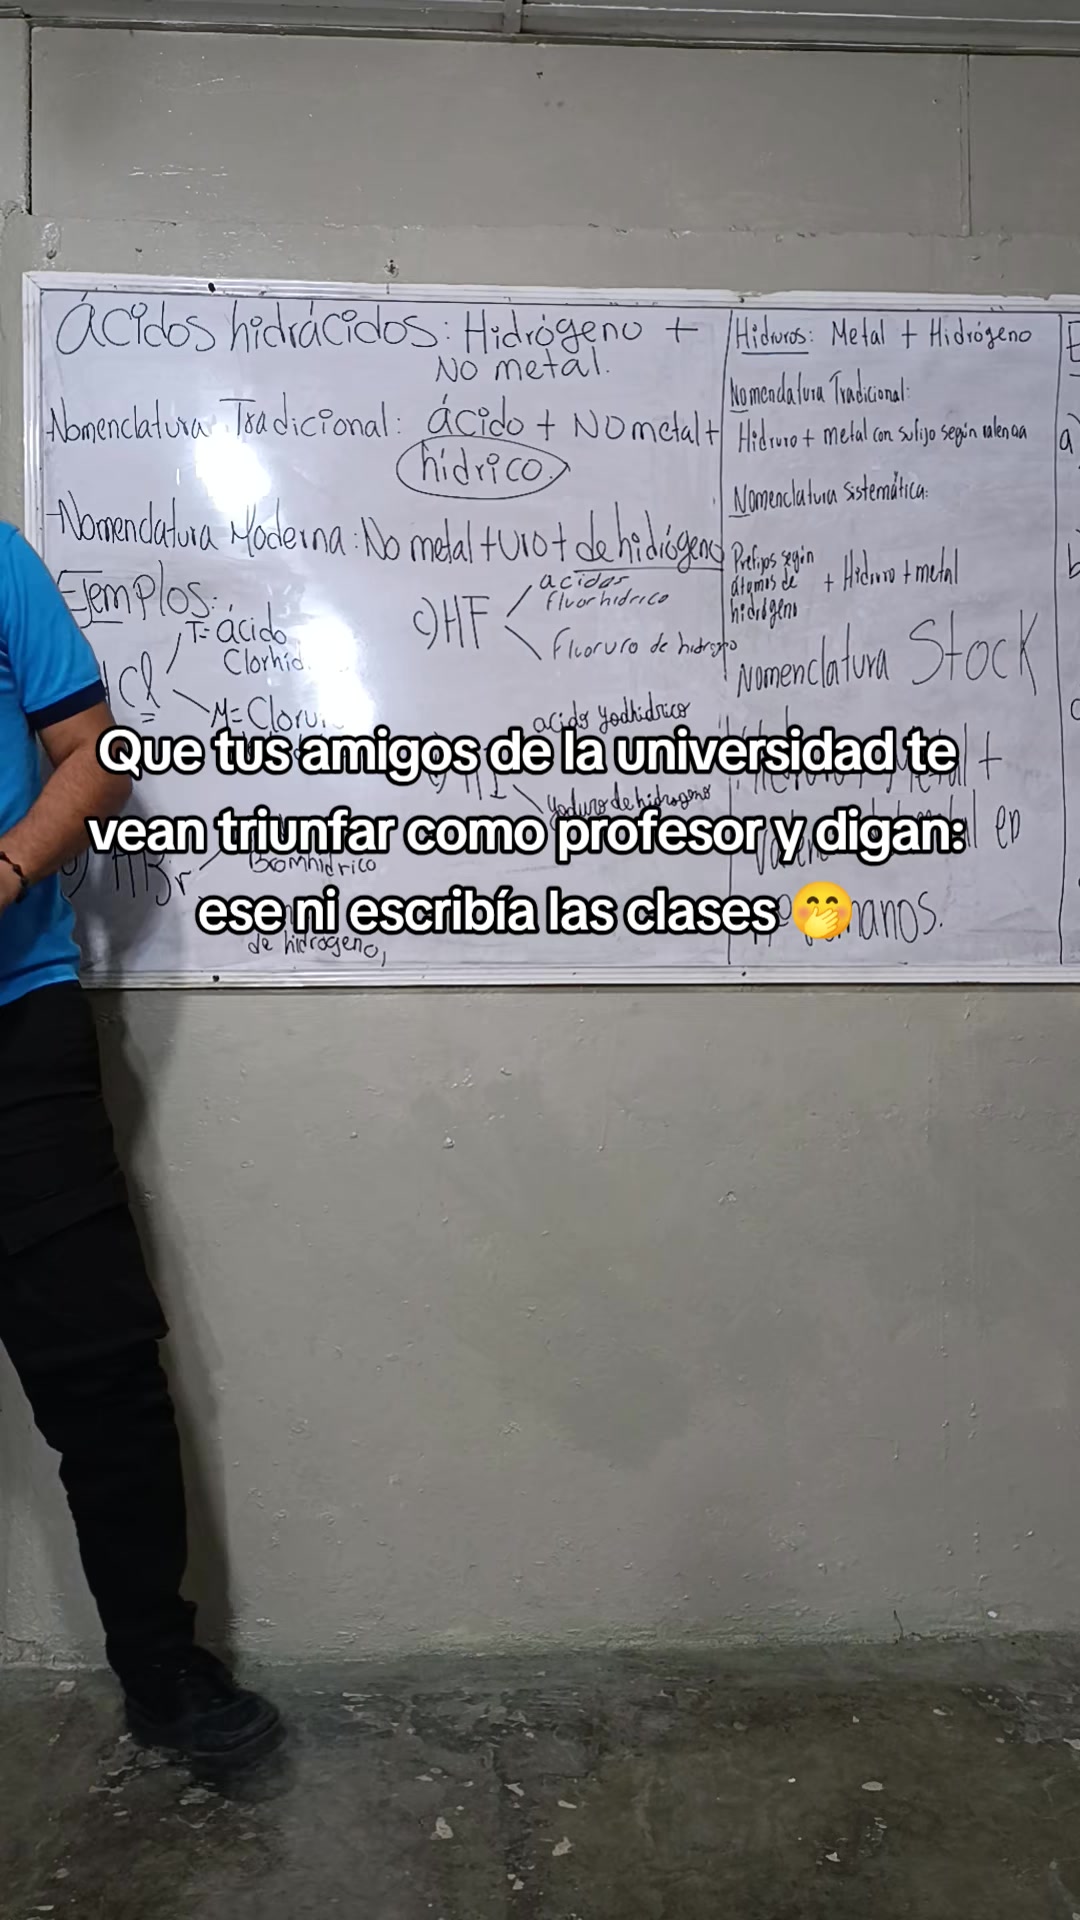 Ácidos hidrácidos: Hidrógeno +
No metal.
Nomenclatura Tradicional: ácido + No metal +
hídrico.
Nomenclatura Moderna: No metal + uro + de hidrógeno
Ejemplos:
HCl
T= ácido
Clorhid
M= Cloru
c) HF
acidos
fluorhidrico
Fluoruro de hidrogeno
acido yodhidrico
yoduro de hidrogeno
HBr
Bromhidrico
de hidrogeno,
Hidruros: Metal + Hidrógeno
Nomenclatura Tradicional:
Hidruro + metal con sufijo según valencia
Nomenclatura Sistemática:
Prefijos según
átomos de
hidrógeno
+ Hidruro + metal
Nomenclatura Stock
+
en
manos.
a)
b
Que tus amigos de la universidad te
vean triunfar como profesor y digan:
ese ni escribía las clases 🤭